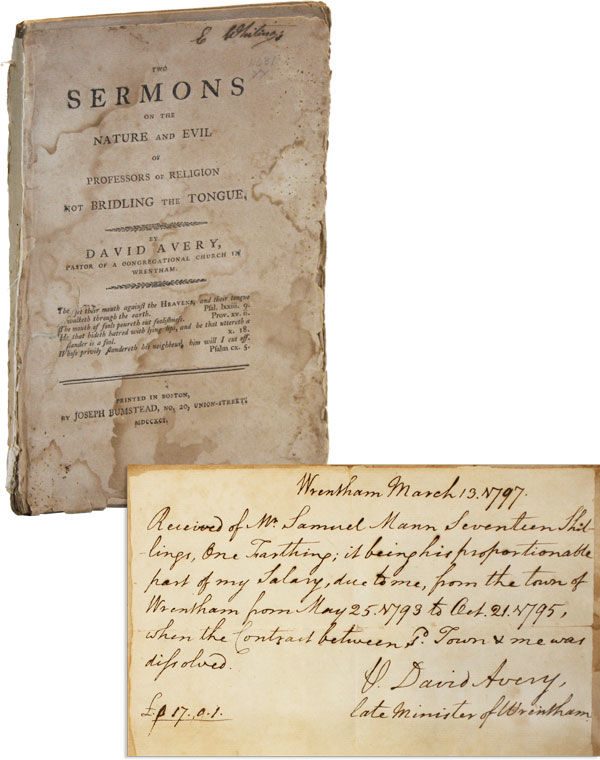 E Whiting's
TWO
SERMONS
ON THE
NATURE AND EVIL
OF
PROFESSORS OF RELIGION
NOT BRIDLING THE TONGUE.
BY
DAVID AVERY,
PASTOR OF A CONGREGATIONAL CHURCH IN
WRENTHAM.
They set their mouth against the HEAVENS, and their tongue
walketh through the earth. Psal. lxxiii. 9.
The mouth of fools poureth out foolishness. Prov. xv. ii.
He that hideth hatred with lying lips, and he that uttereth a
slander is a fool. x. 18.
Whoso privily slandereth his neighbour, him will I cut off.
Psalm cx. 5.
PRINTED IN BOSTON,
BY JOSEPH BUMSTEAD, NO. 20, UNION-STREET.
MDCCXCI.
Wrentham March 13. 1797.
Received of Mr. Samuel Mann Seventeen Shil-
lings, One Farthing; it being his proportionable
part of my Salary, due to me, from the town of
Wrentham from May 25. 1793 to Oct. 21. 1795,
when the Contract between sd. Town & me was
dissolved.
David Avery,
£0 17. 0. 1. late Minister of Wrentham